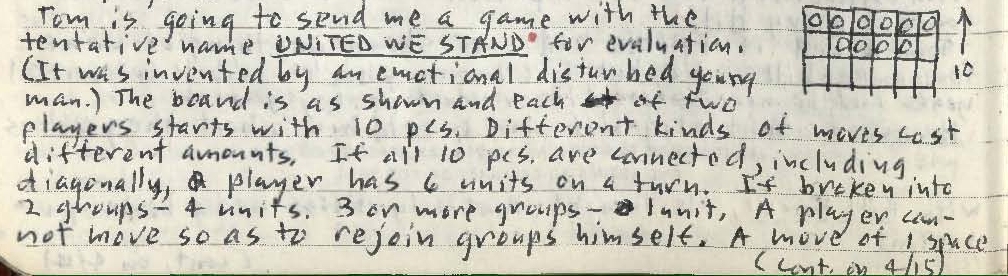 Tom is going to send me a game with the
tentative name UNITED WE STAND for evaluation.
(It was invented by an emotional disturbed young
man.) The board is as shown and each of two
players starts with 10 pcs. Different kinds of moves cost
different amounts. If all 10 pcs. are connected, including
diagonally, a player has 6 units on a turn. If broken into
2 groups – 4 units. 3 or more groups – 1 unit. A player can-
not move so as to rejoin groups himself. A move of 1 space
(cont. on 4/15)
10